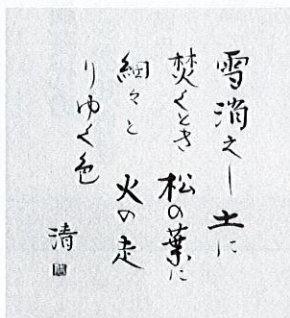 雪消えし土に
焚くとき松の葉に
細々と火の走
りゆく色
清